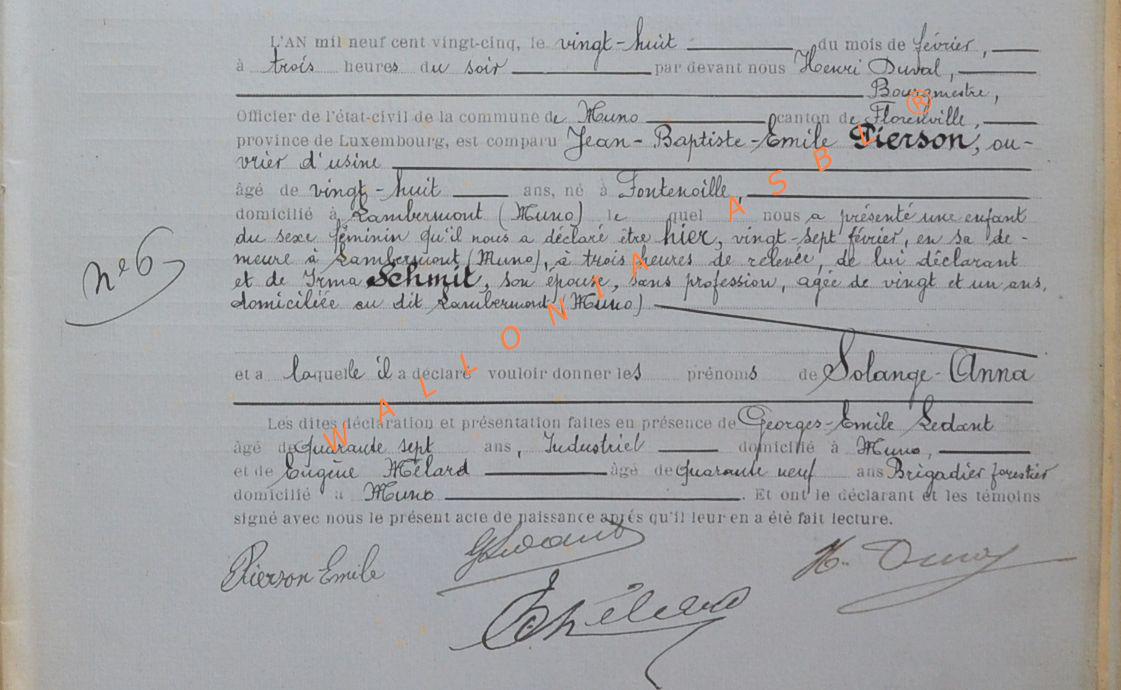 L'AN mil neuf cent vingt-cinq, le vingt-huit du mois de février,
à trois heures du soir par devant nous Henri Duval,
Bourgmestre,
Officier de l'état-civil de la commune de Muno canton de Florenville,
province de Luxembourg, est comparu Jean-Baptiste-Emile Pierson, ou-
vrier d'usine
âgé de vingt-huit ans, né à Fontenoille,
domicilié à Lambermont (Muno) lequel nous a présenté une enfant
du sexe féminin qu'il nous a déclaré être hier, vingt-sept février, en sa de-
meure à Lambermont (Muno), à trois heures de relevée, de lui déclarant
n° 6
et de Irma Schmit, son épouse, sans profession, agée de vingt et un ans,
domiciliée au dit Lambermont (Muno)
et a laquelle il a déclaré vouloir donner les prénoms de Solange-Anna
Les dites déclaration et présentation faites en présence de Georges-Emile Ledant
âgé de quarante sept ans, Industriel domicilié à Muno,
et de Eugène Mélard âgé de quarante neuf ans Brigadier forestier
domicilié a Muno. Et ont le déclarant et les témoins
signé avec nous le présent acte de naissance après qu'il leur en a été fait lecture.
Pierson Emile
GLedant
H. Duval
EMélard
WALLONIA ASBL ®